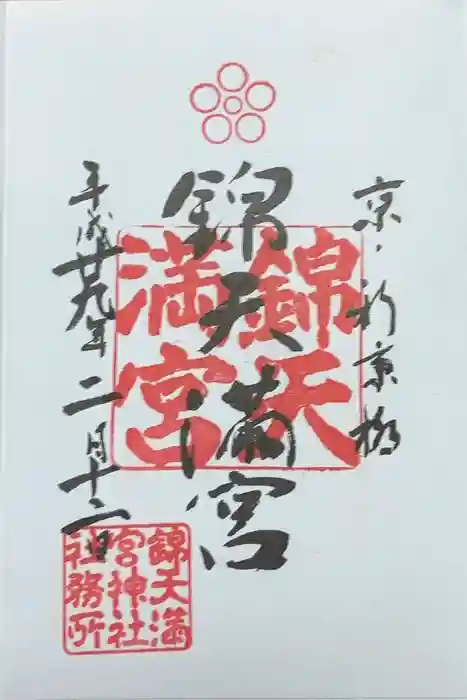 京・新京極
錦天満宮
平成廿九年二月十二日
錦天
満宮
錦天満
宮神社
社務所